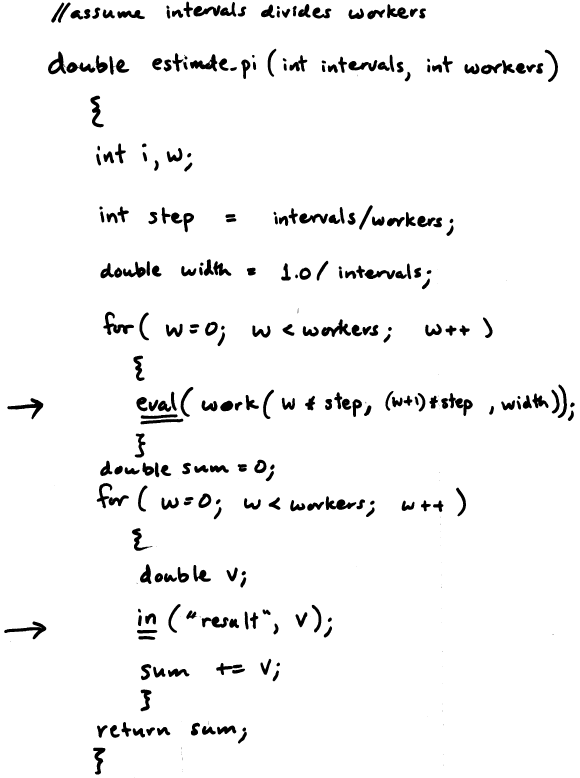 //assume intervals divides workers
double estimate_pi (int intervals, int workers)
{
int i, w;
int step = intervals/workers;
double width = 1.0/ intervals;
for( w=0; w < workers; w++ )
{
→ eval( work( w * step, (w+1)*step , width));
}
double sum = 0;
for ( w=0; w < workers; w++ )
{
double v;
→ in ("result", v);
sum += v;
}
return sum;
}